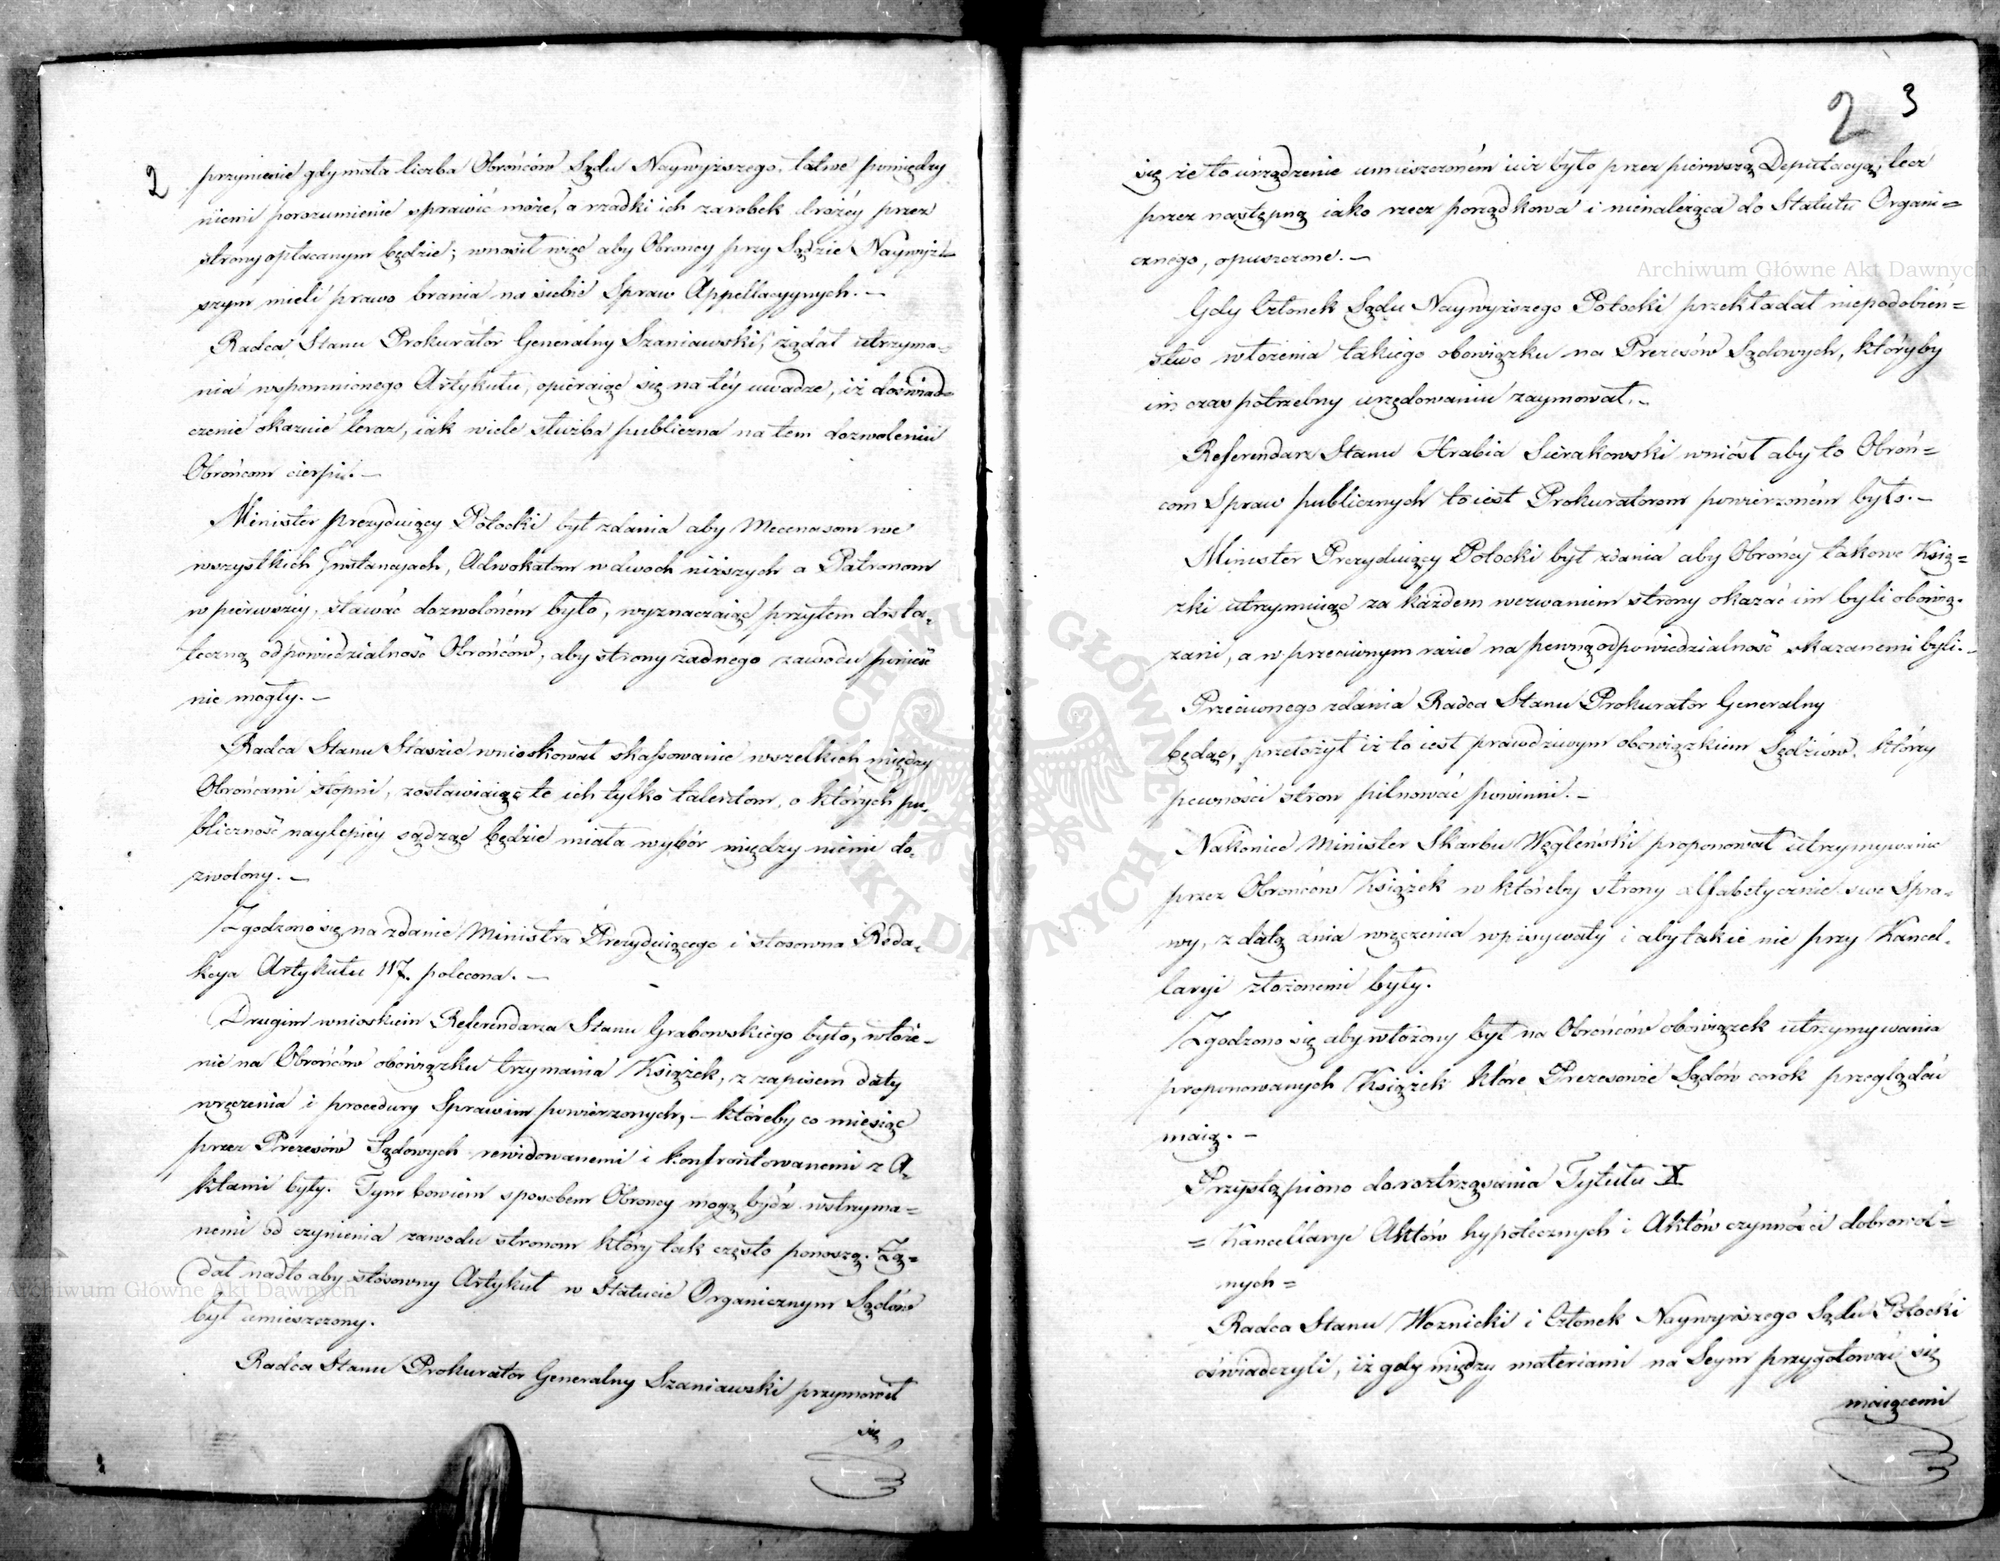 2
przyniesie gdy mała liczba Obrońców Sądu Naywyższego, łatwe pomiędzy
niemi porozumienie sprawić może, a rzadki ich zarobek drożéy przez
strony opłacanym będzie; wnosił więc aby Obroncy przy Sądzie Naywyż-
szym mieli prawo brania na siebie Spraw Appellacyynych. —
Radca Stanu Prokurator Generalny Szaniawski, żądał utrzyma-
nia wspomnionego Artykułu, opieraiąc się na téy uwadze, iż doświad-
czenie okazuie teraz, iak wiele służba publiczna na tem dozwoleniu
Obrońcom cierpi. —
Minister Prezyduiący Potocki był zdania aby Mecenasom we
wszystkich Instancyach, Adwokatom w dwoch niższych a Patronom
w pierwszéy, stawać dozwoloném było, wyznaczaiąc przytem dosta-
teczną odpowiedzialność Obrońców, aby strony żadnego zawodu ponieść
nie mogły. —
Radca Stanu Staszic wnioskował skassowanie wszelkich między
Obrońcami stopni, zostawiaiąc te ich tylko talentom, o których pu-
bliczność naylepiéy sądząc będzie miała wybór między niemi do-
zwolony. —
Zgodzono się na zdanie Ministra Prezyduiącego i stosowna Reda-
kcya Artykułu 117. polecona. —
Drugim wnioskiem Referendarza Stanu Grabowskiego było, włoże-
nie na Obrońców obowiązku trzymania Książek, z zapisem daty
wręczenia i procedury Sprawim powierzonych, — któreby co miesiąc
przez Prezesów Sądowych rewidowanemi i konfrontowanemi z A-
ktami były. Tym bowiem sposobem Obroncy mogą bydź wstrzyma-
nemi od czynienia zawodu stronom który tak często ponoszą. Żą-
dał nadto aby stosowny Artykuł w Statucie Organicznym Sądów
był umieszczony.
Radca Stanu Prokurator Generalny Szaniawski przymowił
się
2 3
się że to urządzenie umieszczoném iuż było przez pierwszą Deputacyą, lecz
przez następną iako rzecz porządkowa i nienależąca do Statutu Organi-
cznego, opuszczone. —
Gdy Członek Sądu Naywyższego Potocki przekładał niepodobień-
stwo włożenia takiego obowiązku na Prezesów Sądowych, któryby
im czas potrzebny urzędowaniu zaymował. —
Referendarz Stanu Hrabia Sierakowski wniósł aby to Obroń-
com Spraw publicznych to iest Prokuratorom powierzoném było. —
Minister Prezyduiący Potocki był zdania aby Obrońcy takowe Ksią-
żki utrzymuiąc za każdem wezwaniem strony okazać im byli obowią-
zani, a w przeciwnym razie na pewną odpowiedzialność skazanemi byli. —
Przeciwnego zdania Radca Stanu Prokurator Generalny
będąc, przełożył iż to iest prawdziwym obowiązkiem Sędziów, którzy
pewności stron pilnować powinni. —
Nakoniec Minister Skarbu Węgleński proponował utrzymywanie
przez Obrońców Książek w któreby strony alfabetycznie swe Spra-
wy, z datą dnia wręczenia wpisywały i aby takie nie przy Kancel-
laryi złożonemi były.
Zgodzono się aby włożony był na Obrońców obowiązek utrzymywania
proponowanych Książek które Prezesowie Sądów corok przeglądać
maią. —
Przystąpiono do roztrząsania Tytułu X
= Kancellarye Aktów hypotecznych i Aktów czynności dobrowol=
nych =
Radca Stanu Woznicki i Członek Naywyższego Sądu Potocki
oświadczyli, iż gdy między materiami na Seym przygotować się
maiącemi
Archiwum Główne Akt Dawnych
Archiwum Główne Akt Dawnych
ARCHIWUM GŁÓWNE AKT DAWNYCH